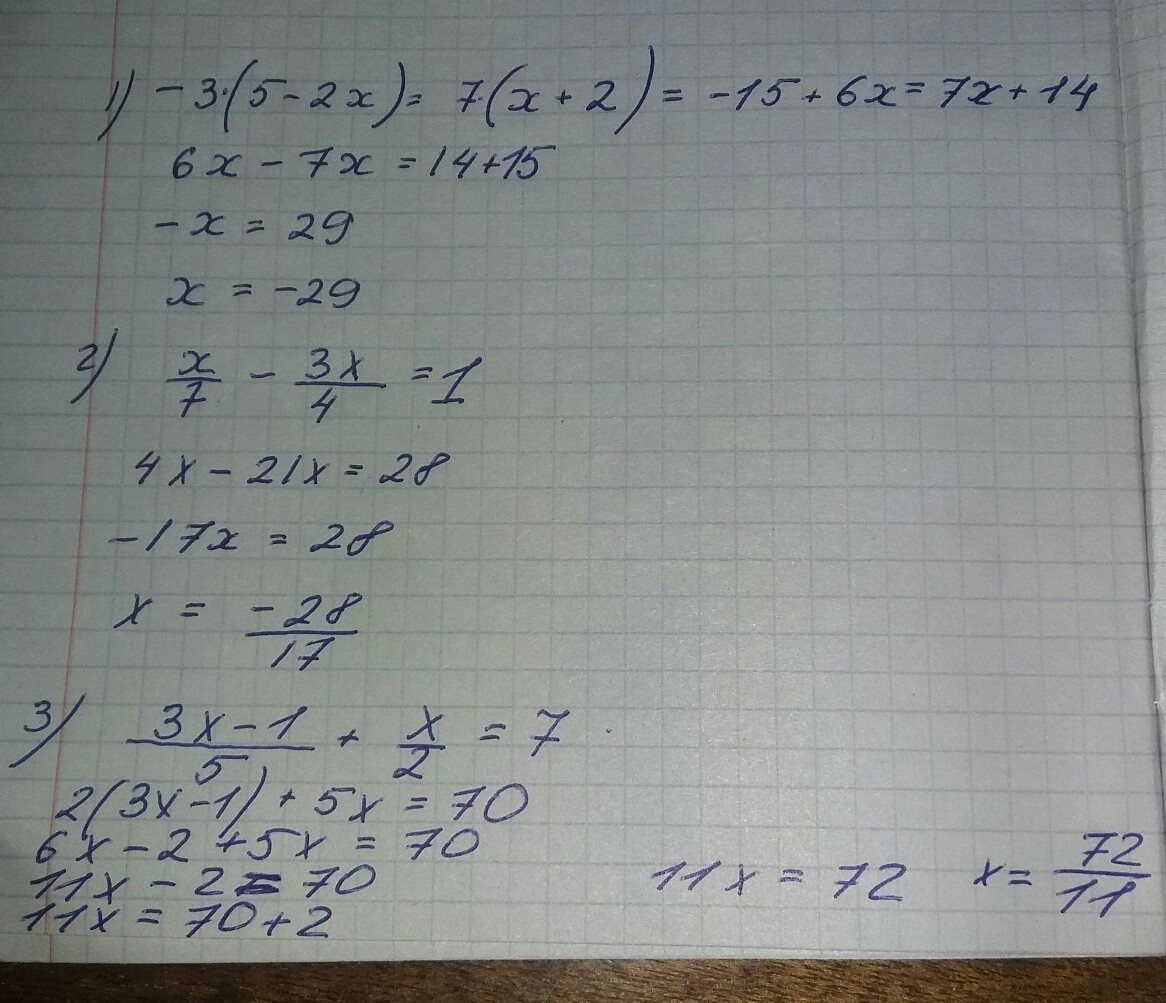 1) -3·(5-2x)= 7·(x+2)= -15+6x=7x+14
6x-7x=14+15
-x=29
x=-29
2) x/7 - 3x/4 =1
4x-21x=28
-17x=28
x= -28/17
3) 3x-1/5 + x/2 =7
2(3x-1)+5x=70
6x-2+5x=70
11x-2=70
11x=70+2
11x=72 x=72/11